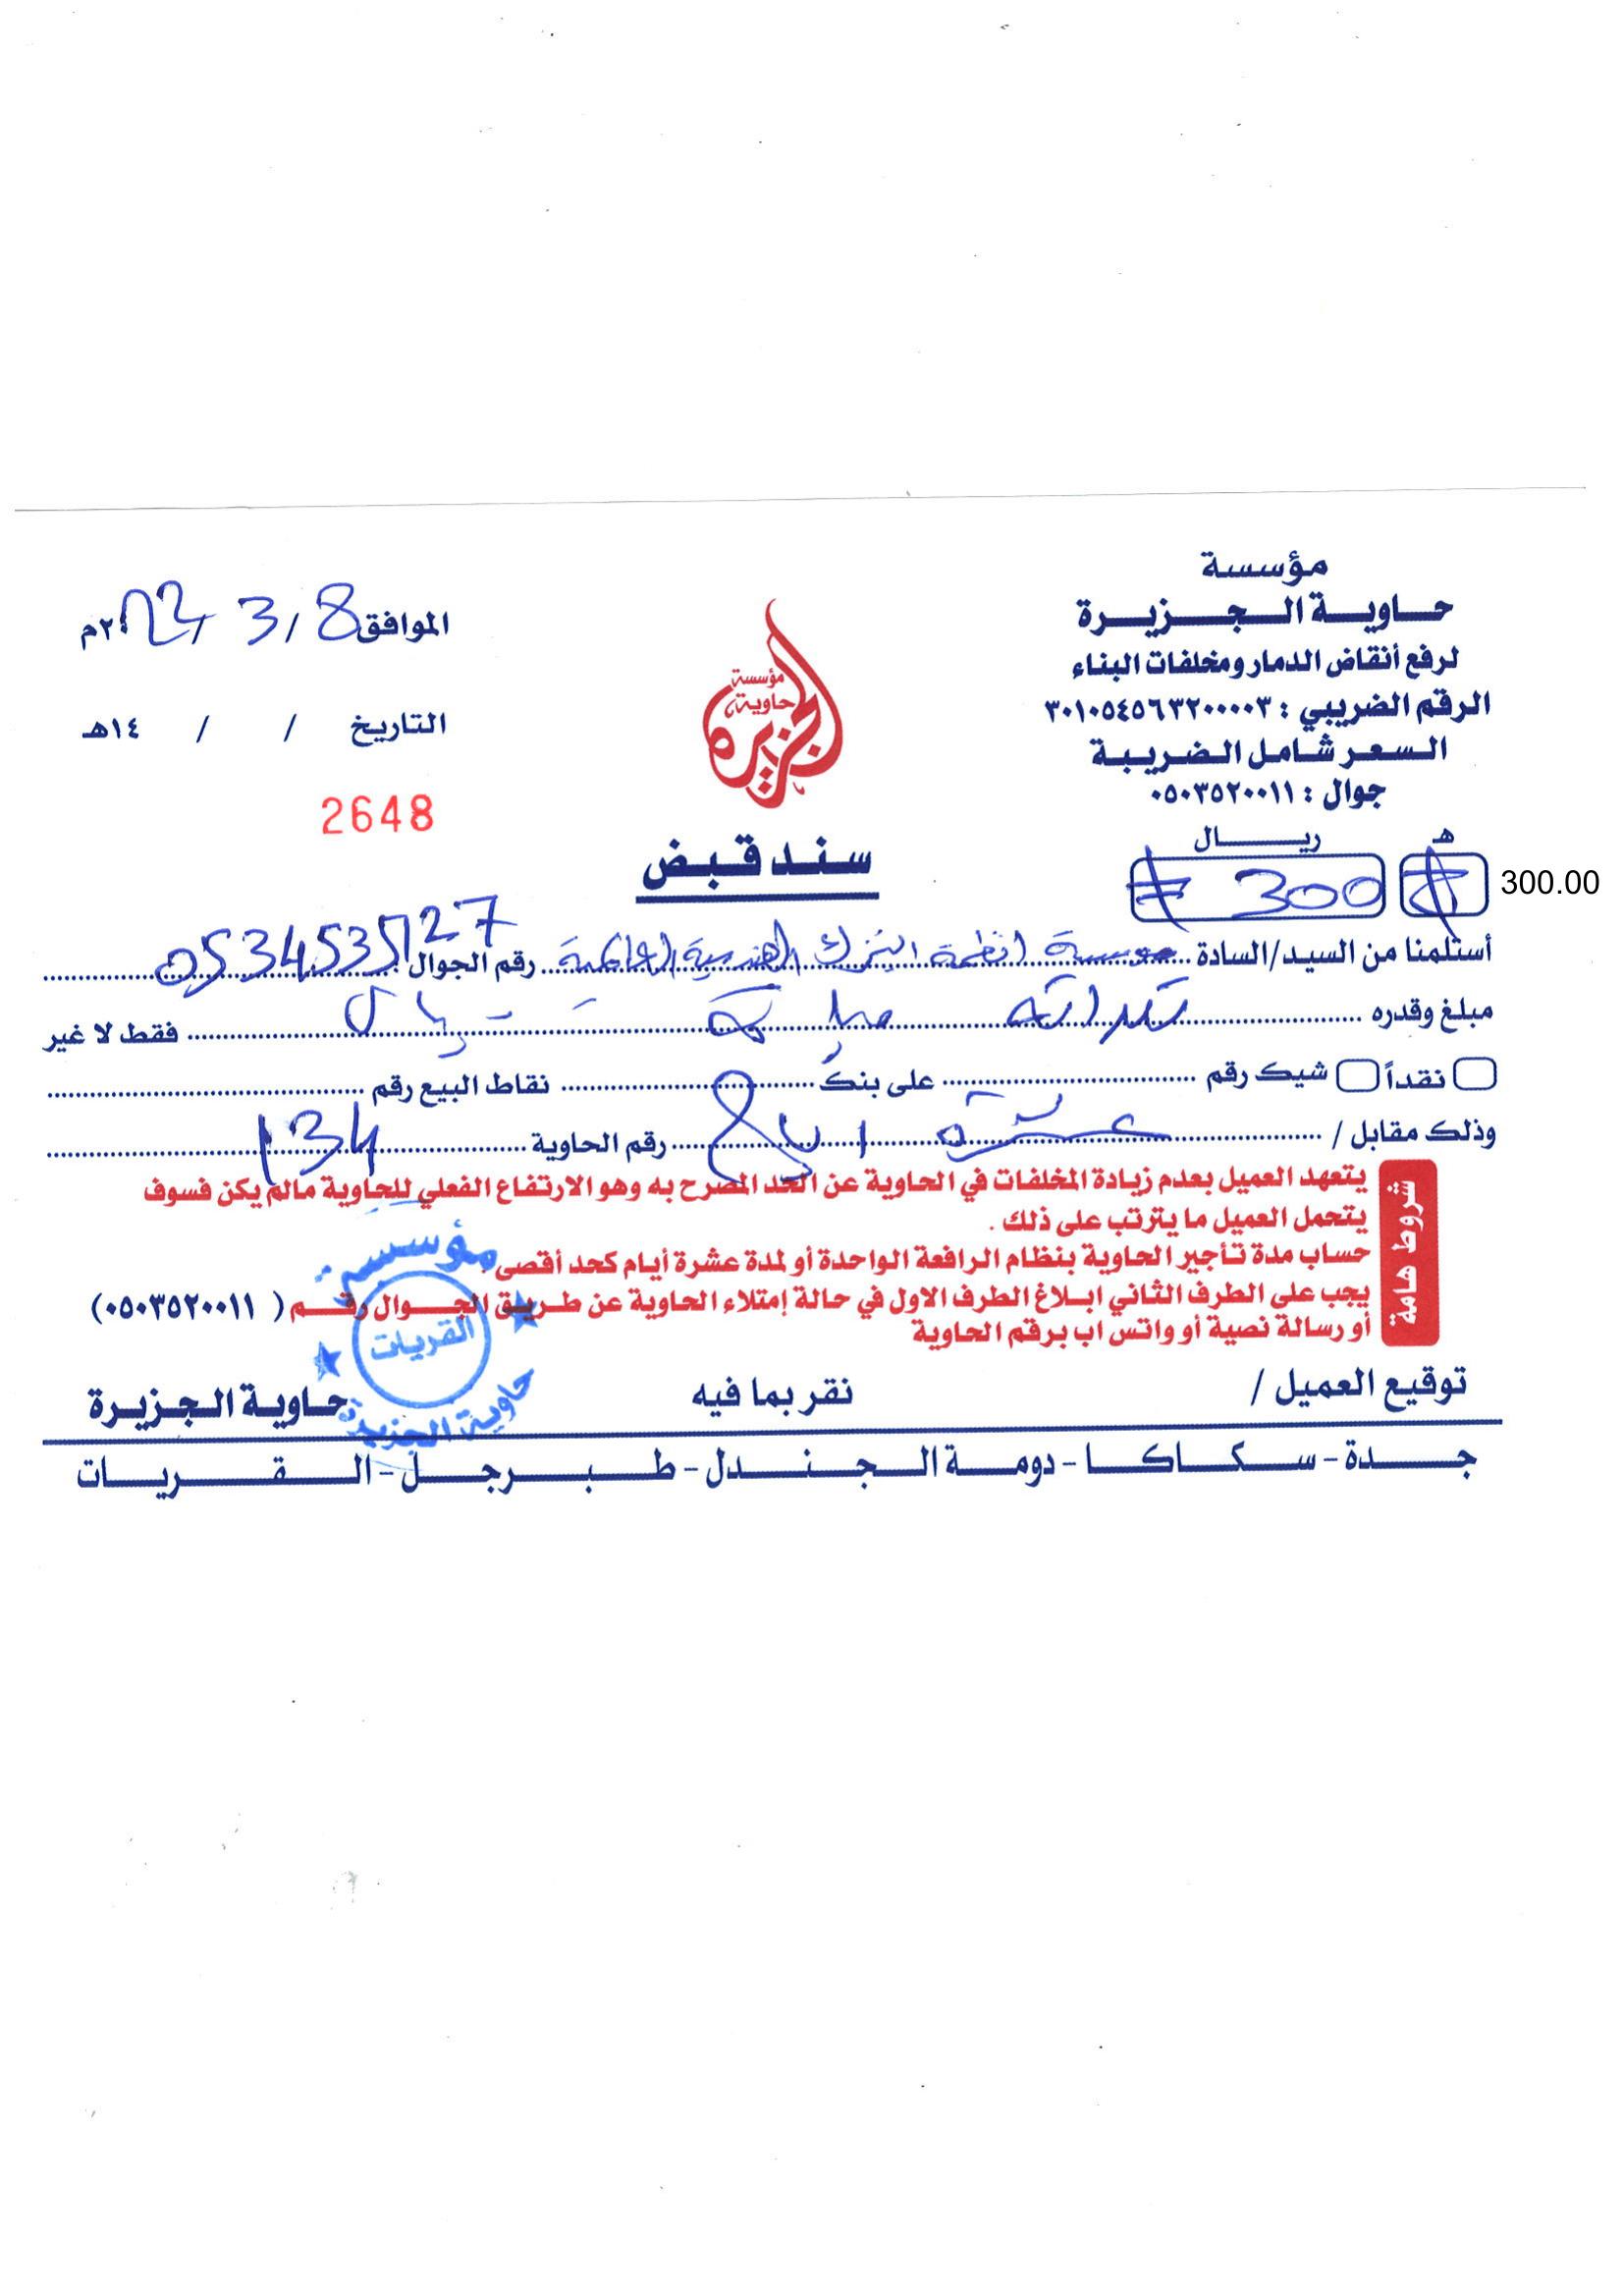 مؤسسة
حاوية الجزيرة
لرفع أنقاض الدمار ومخلفات البناء
الرقم الضريبي : ٣٠١٠٥٤٥٦٣٢٠٠٠٠٣
السعر شامل الضريبة
جوال : ٠٥٠٣٥٢٠٠١١
مؤسسة
حاوية
الجزيرة
الموافق 8 / 3 / ٢٠22م
التاريخ / / ١٤هـ
2648
سند قبض
هـ ريال
300 300.00
أستلمنا من السيد/السادة مؤسسة انظمة الهندسية رقم الجوال 0534535127
مبلغ وقدره ريال فقط لا غير
نقداً شيك رقم على بنك نقاط البيع رقم
وذلك مقابل / عشرة رقم الحاوية 134
شروط هامة
يتعهد العميل بعدم زيادة المخلفات في الحاوية عن الحد المصرح به وهو الارتفاع الفعلي للحاوية مالم يكن فسوف
يتحمل العميل ما يترتب على ذلك .
حساب مدة تأجير الحاوية بنظام الرافعة الواحدة أو لمدة عشرة أيام كحد أقصى .
يجب على الطرف الثاني ابلاغ الطرف الاول في حالة إمتلاء الحاوية عن طريق الجوال رقم ( ٠٥٠٣٥٢٠٠١١ )
أو رسالة نصية أو واتس اب برقم الحاوية
مؤسسة
القريات
حاوية الجزيرة
توقيع العميل / نقر بما فيه حاوية الجزيرة
جدة - سكاكا - دومة الجندل - طبرجل - القريات